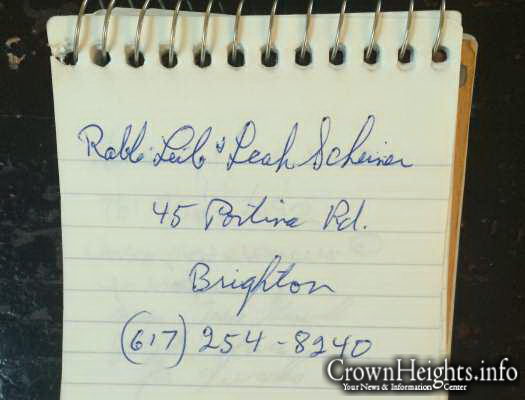 Rabbi Leib & Leah Scheiner
45 Portina Rd.
Brighton
(617) 254-8240
CrownHeights.info
Your News & Information Center